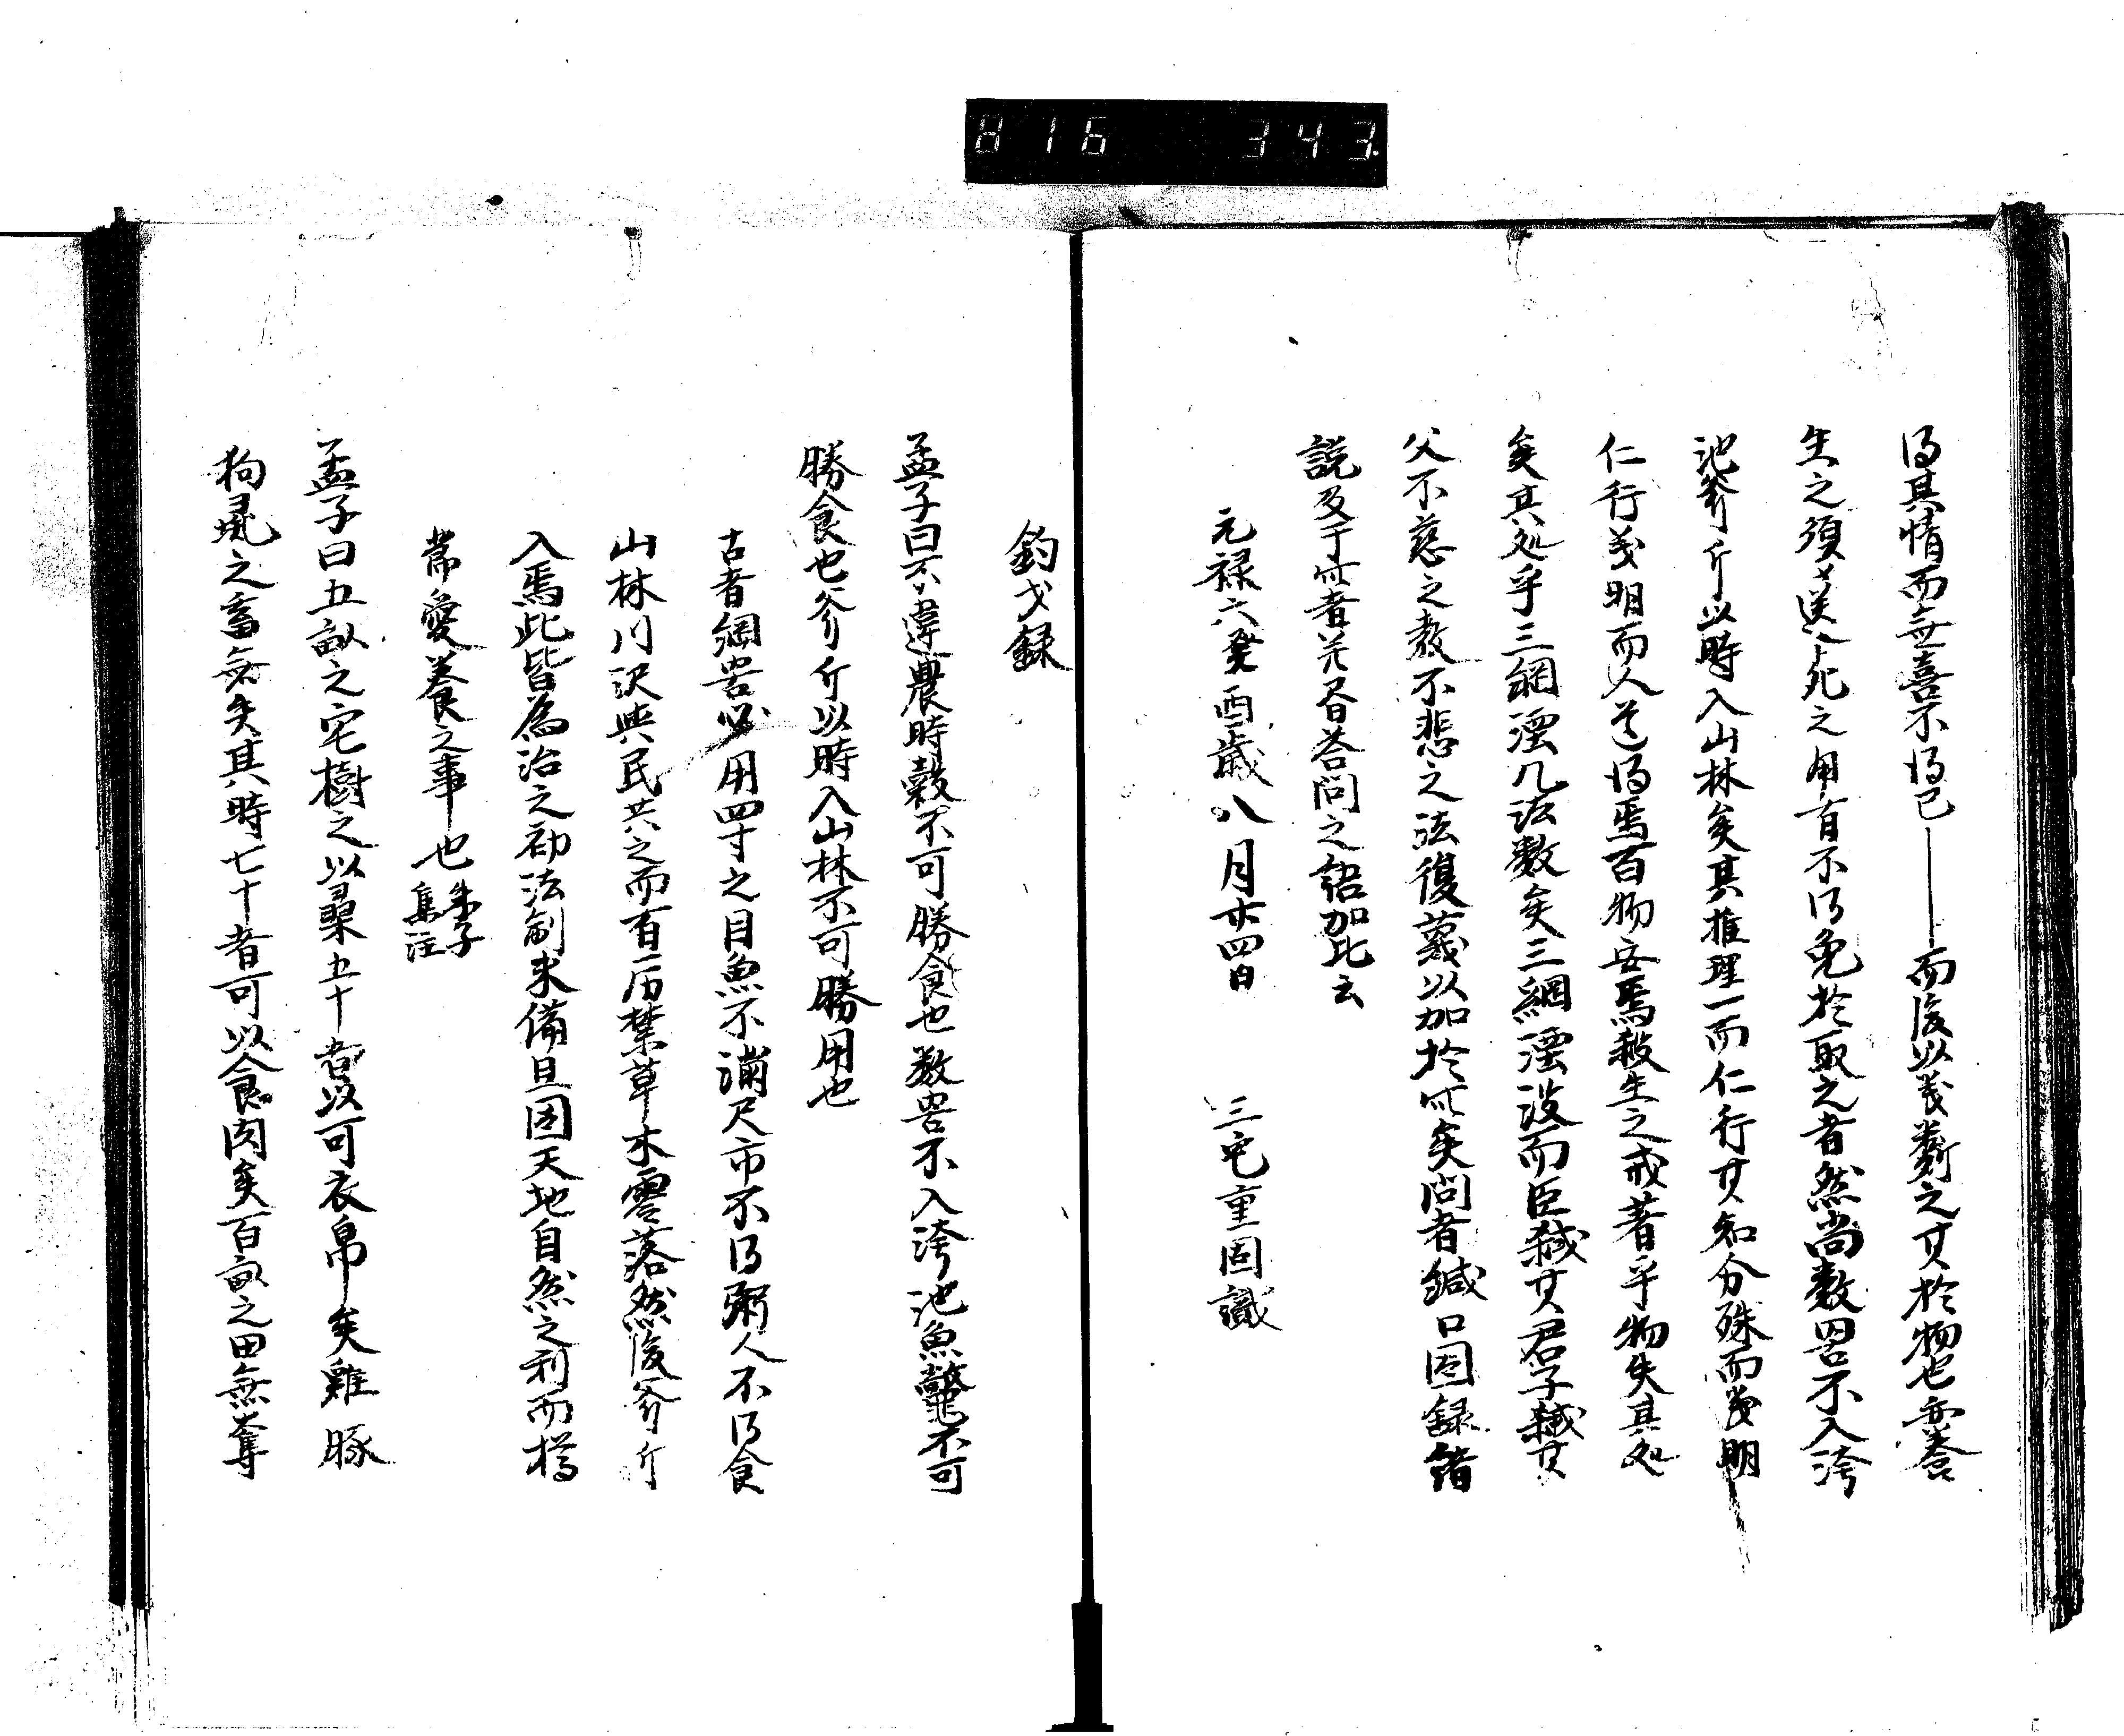 816 343.
得其情而無喜不得已――而後以義断之其於物也雖養
生之須送死之用有不得免於取之者然尚数罟不入洿
池斧斤以時入山林矣其推理一而仁行其知分殊而義明
仁行義明而人道得焉百物安焉殺生之戒著乎物失其処
矣其処乎三綱湮九法斁矣三綱湮没而臣弑其君子弑其
父不慈之教不悲之法復蔑以加於此矣問者緘口因録諸
説及于此者并答問之語如此云
元禄六癸酉歳八月廿四日 三宅重固識
釣弋録
孟子曰不違農時穀不可勝食也数罟不入洿池魚鼈不可
勝食也斧斤以時入山林不可勝用也
古者網罟必用四寸之目魚不満尺市不得粥人不得食
山林川沢与民共之而有厉禁草木零落然後斧斤
入焉此皆為治之初法制未備且因天地自然之利而撙
節愛養之事也 朱子集注
孟子曰五畝之宅樹之以桑五十者以可衣帛矣雞豚
狗彘之畜無失其時七十者可以食肉矣百畝之田無奪